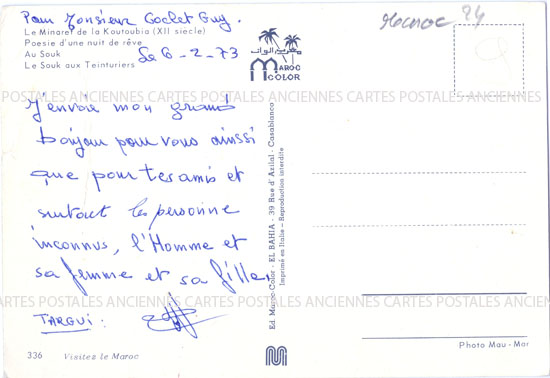 Pour Monsieur Goclet Guy.
Le Minaret de la Koutoubia (XII siècle)
Poesie d'une nuit de rêve
Au Souk
Le Souk aux Teinturiers
Le 6-2-73
مغرب الوان
MAROC
COLOR
Maroc 24
POSTALES ANCIENNES CARTES POSTALES ANCIENNES CARTES POSTALES ANCIENNES
J'envoie mon grand
bonjour pour vous ainssi
que pour tes amis et
surtout les personne
inconnus, l'Homme et
sa femme et sa fille.
CARTES POSTALES ANCIENNES CARTES POSTALES ANCIENNES CARTES POSTALES
TARGUI:
Ed. Maroc-Color - EL BAHIA - 39 Rue d'Azilal - Casablanca
Imprimé en Italie - Reproduction interdite
336 Visitez le Maroc
Photo Mau-Mar